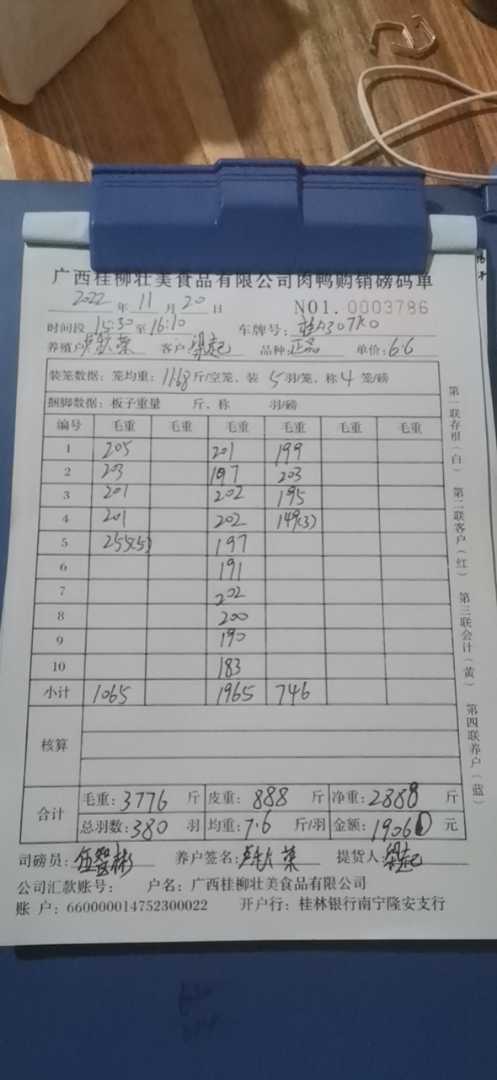 广西桂柳壮美食品有限公司肉鸭购销磅码单
2022 年 11 月 20 日 NO1. 0003786
时间段 15:30 至 16:10 车牌号: 桂A307K0
养殖户 客户 品种: 正品 单价: 6.6
装笼数据: 笼均重: 11.68 斤/空笼、装 5 羽/笼、称 4 笼/磅
捆脚数据: 板子重量 斤、称 羽/磅
编号 毛重 毛重 毛重 毛重 毛重 毛重
1 205 201 199
2 203 197 203
3 201 202 195
4 201 202 149(3)
5 255(5) 197
6 191
7 202
8 200
9 190
10 183
小计 1065 1965 746
核算
合计 毛重: 3776 斤 皮重: 888 斤 净重: 2888 斤
总羽数: 380 羽 均重: 7.6 斤/羽 金额: 19061 元
司磅员: 养户签名: 提货人:
公司汇款账号: 户名: 广西桂柳壮美食品有限公司
账 户: 660000014752300022 开户行: 桂林银行南宁隆安支行
第一联存根(白) 第二联客户(红) 第三联会计(黄) 第四联养户(蓝)